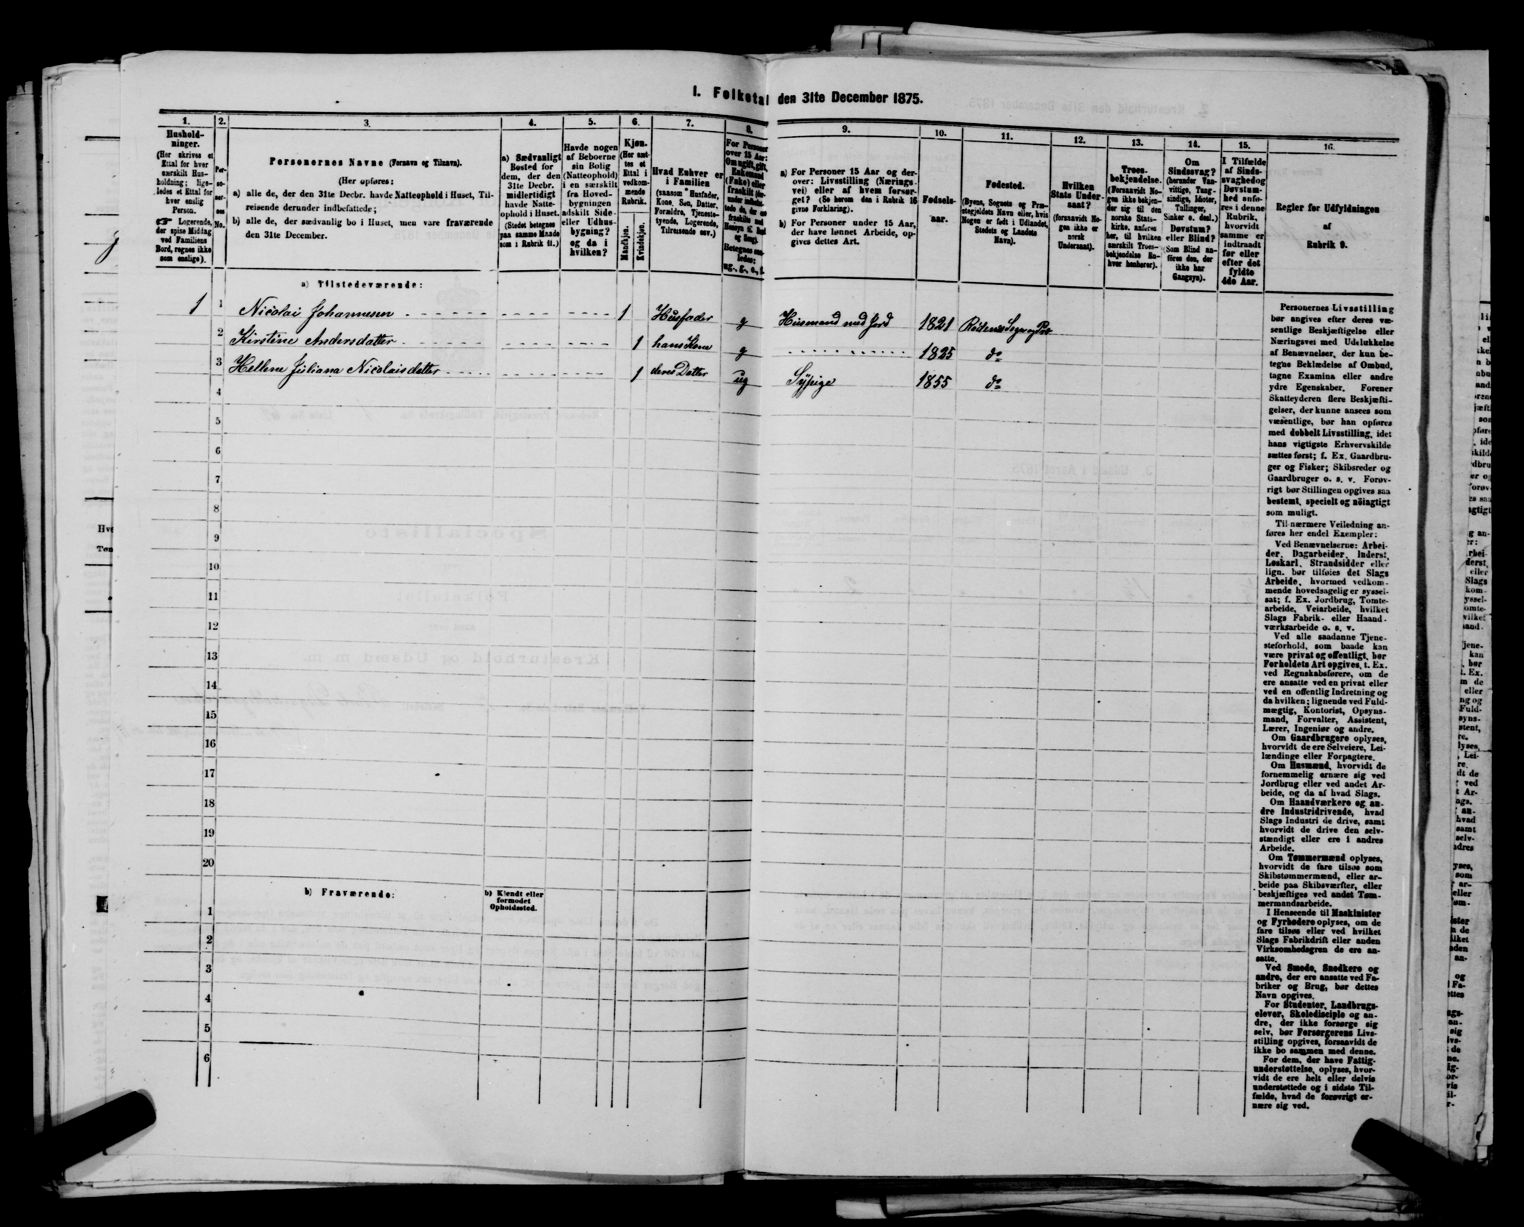 I. Folketal den 31te December 1875.
1.
Hushold-
ninger.
(Her skrives et
Ettal for hver
særskilt Hus-
holdning; lige-
ledes et Ettal for
hver enslig
Person.
☞ Logerende,
der spise Middag
ved Familiens
Bord, regnes ikke
som enslige).
2.
Per-
so-
ner-
nes
No.
3.
Personernes Navne (Fornavn og Tilnavn).
(Her opføres:
a) alle de, der den 31te Decbr. havde Natteophold i Huset, Til-
reisende derunder indbefattede;
b) alle de, der sædvanlig bo i Huset, men vare fraværende
den 31te December.
4.
a) Sædvanligt
Bosted for
dem, der den
31te Decbr.
midlertidigt
havde Natte-
ophold i Huset.
(Stedet betegnes
paa samme Maade
som i Rubrik 11.)
5.
Havde nogen
af Beboerne
sin Bolig
(Natteophold)
i en særskilt
fra Hoved-
bygningen
adskilt Side-
eller Udhus-
bygning?
og da i
hvilken?
6.
Kjøn.
(Her sæt-
tes et
Ettal i
vedkom-
mende
Rubrik.
Mandkjøn.
Kvindekjøn.
7.
Hvad Enhver er
i Familien
(saasom Husfader,
Kone, Søn, Datter,
Forældre, Tjeneste-
tyende, Logerende,
Tilreisende osv.)
8.
For Personer
over 15 Aar:
Om ugift, gift,
Enkemand
(Enke) eller
fraskilt
9.
a) For Personer 15 Aar og der-
over: Livsstilling (Nærings-
vei) eller af hvem forsør-
get? (Se herom den i Rubrik 16
givne Forklaring).
b) For Personer under 15 Aar,
der have lønnet Arbeide, op-
gives dettes Art.
10.
Fødsels-
aar.
11.
Fødested.
(Byens, Sognets og Præ-
stegjeldets Navn eller, hvis
Nogen er født i Udlandet,
Stedets og Landets
Navn).
12.
Hvilken
Stats Under-
saat?
(forsaavidt No-
gen ikke er
norsk
Undersaat).
13.
Troes-
bekjendelse.
(Forsaavidt No-
gen ikke bekjen-
der sig til den
norske Stats-
kirke, anføres
her, til hvilken
særskilt Troes-
bekjendelse En-
hver henhører).
14.
Om
Sindssvag?
(herunder Van-
vittige, Tung-
sindige, Idioter,
Tullinger,
Sinker o. desl.)
Døvstum?
eller Blind?
(Som Blind an-
føres den, der
ikke har
Gangsyn).
15.
I Tilfælde
af Sinds-
svaghed og
Døvstum-
hed anfø-
res i denne
Rubrik,
hvorvidt
samme er
indtraadt
før eller
efter det
fyldte
4de Aar.
16.
Regler for Udfyldningen
af
Rubrik 9.
a) Tilstedeværende:
1 1 Nicolai Johannesen 1 Husfader g Husmand med Jord 1821
2 Kirstine Andersdatter 1 hans Kone g 1825 do
3 Hellene Juliana Nicolaisdatter 1 deres Datter ug Sypige 1855 do
4
5
6
7
8
9
10
11
12
13
14
15
16
17
18
19
20
b) Fraværende:
b) Kjendt eller
formodet
Opholdssted.
1
2
3
4
5
6
Personernes Livsstilling
bør angives efter deres væ-
sentlige Beskjæftigelse eller
Næringsvei med Udelukkelse
af Benævnelser, der kun be-
tegne Beklædelse af Ombud,
tagne Examina eller andre
ydre Egenskaber. Forener
Skatteyderen flere Beskjæfti-
gelser, der kunne ansees som
væsentlige, bør han opføres
med dobbelt Livsstilling, idet
hans vigtigste Erhvervskilde
sættes først; f. Ex. Gaardbru-
ger og Fisker; Skibsreder og
Gaardbruger o. s. v. Forøv-
rigt bør Stillingen opgives saa
bestemt, specielt og nøiagtigt
som muligt.
Til nærmere Veiledning an-
føres her endel Exempler:
Ved Benævnelserne: Arbei-
der, Dagarbeider, Inderst,
Løskarl, Strandsidder eller
lign. bør tilføies det Slags
Arbeide, hvormed vedkom-
mende hovedsagelig er syssel-
sat; f. Ex. Jordbrug, Tomte-
arbeide, Veiarbeide, hvilket
Slags Fabrik- eller Haand-
værksarbeide o. s. v.
Ved alle saadanne Tjene-
steforhold, som baade kan
være privat og offentligt, bør
Forholdets Art opgives, t. Ex.
ved Regnskabsførere, om de
ere ansatte ved en privat eller
ved en offentlig Indretning og
da hvilken; lignende ved Fuld-
mægtig, Kontorist, Opsyns-
mand, Forvalter, Assistent,
Lærer, Ingeniør og andre.
Om Gaardbrugere oplyses,
hvorvidt de ere Selveiere, Lei-
lændinge eller Forpagtere.
Om Husmænd, hvorvidt de
fornemmelig ernære sig ved
Jordbrug eller ved andet Ar-
beide, og da af hvad Slags.
Om Haandværkere og an-
dre Industridrivende, hvad
Slags Industri de drive, samt
hvorvidt de drive den selv-
stændigt eller ere i andres
Arbeide.
Om Tømmermænd oplyses,
hvorvidt de fare tilsøs som
Skibstømmermænd, eller ar-
beide paa Skibsværfter, eller
beskjæftiges ved andet Tøm-
mermandsarbeide.
I Henseende til Maskinister
og Fyrbødere oplyses, om de
fare tilsøs eller ved hvilket
Slags Fabrikdrift eller anden
Virksomhedsgren de ere an-
satte.
Ved Smede, Snedkere og
andre, der ere ansatte ved Fa-
briker og Brug, bør dettes
Navn opgives.
For Studenter, Landbrugs-
elever, Skoledisciple og an-
dre, der ikke forsørge sig
selv, bør Forsørgerens Livs-
stilling opgives, forsaavidt de
ikke bo sammen med denne.
For dem, der have Fattig-
understøttelse, oplyses, hvor-
vidt de ere helt eller delvis
understøttede og i sidste Til-
fælde, hvad de forøvrigt er-
nære sig ved.